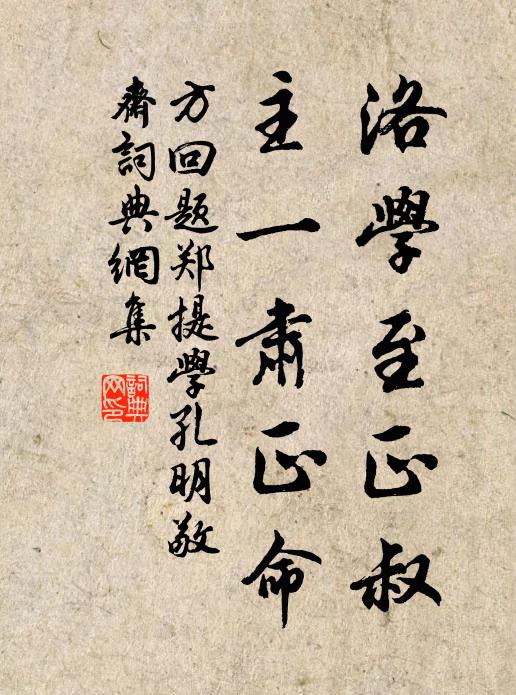 洛學至正叔
主一肅正命
方回題郑提學孔明敬
齋詞典網集
詞典
网印